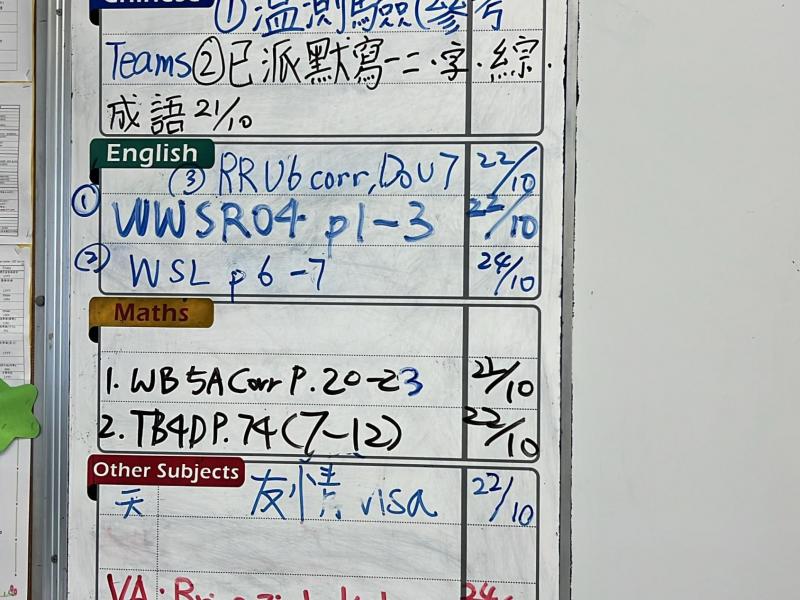 Chinese ① 温測驗(參考
Teams ② 已派默寫一二.字.綜.
成語 21/10
English
③ RRU6 corr, Do U7 22/10
① WWSR04 p1-3 22/10
② WSL p6-7 24/10
Maths
1. WB 5A Corr P. 20-23 22/10
2. TB4D P. 74 (7-12) 22/10
Other Subjects
天 友情 visa 22/10
VA: